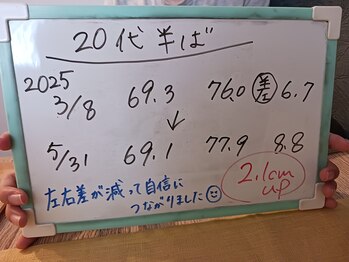 20代半ば
2025
3/8 69.3 76.0 差 6.7
↓
5/31 69.1 77.9 8.8
左右差が減って自信に
つながりました☺
2.1cm
up